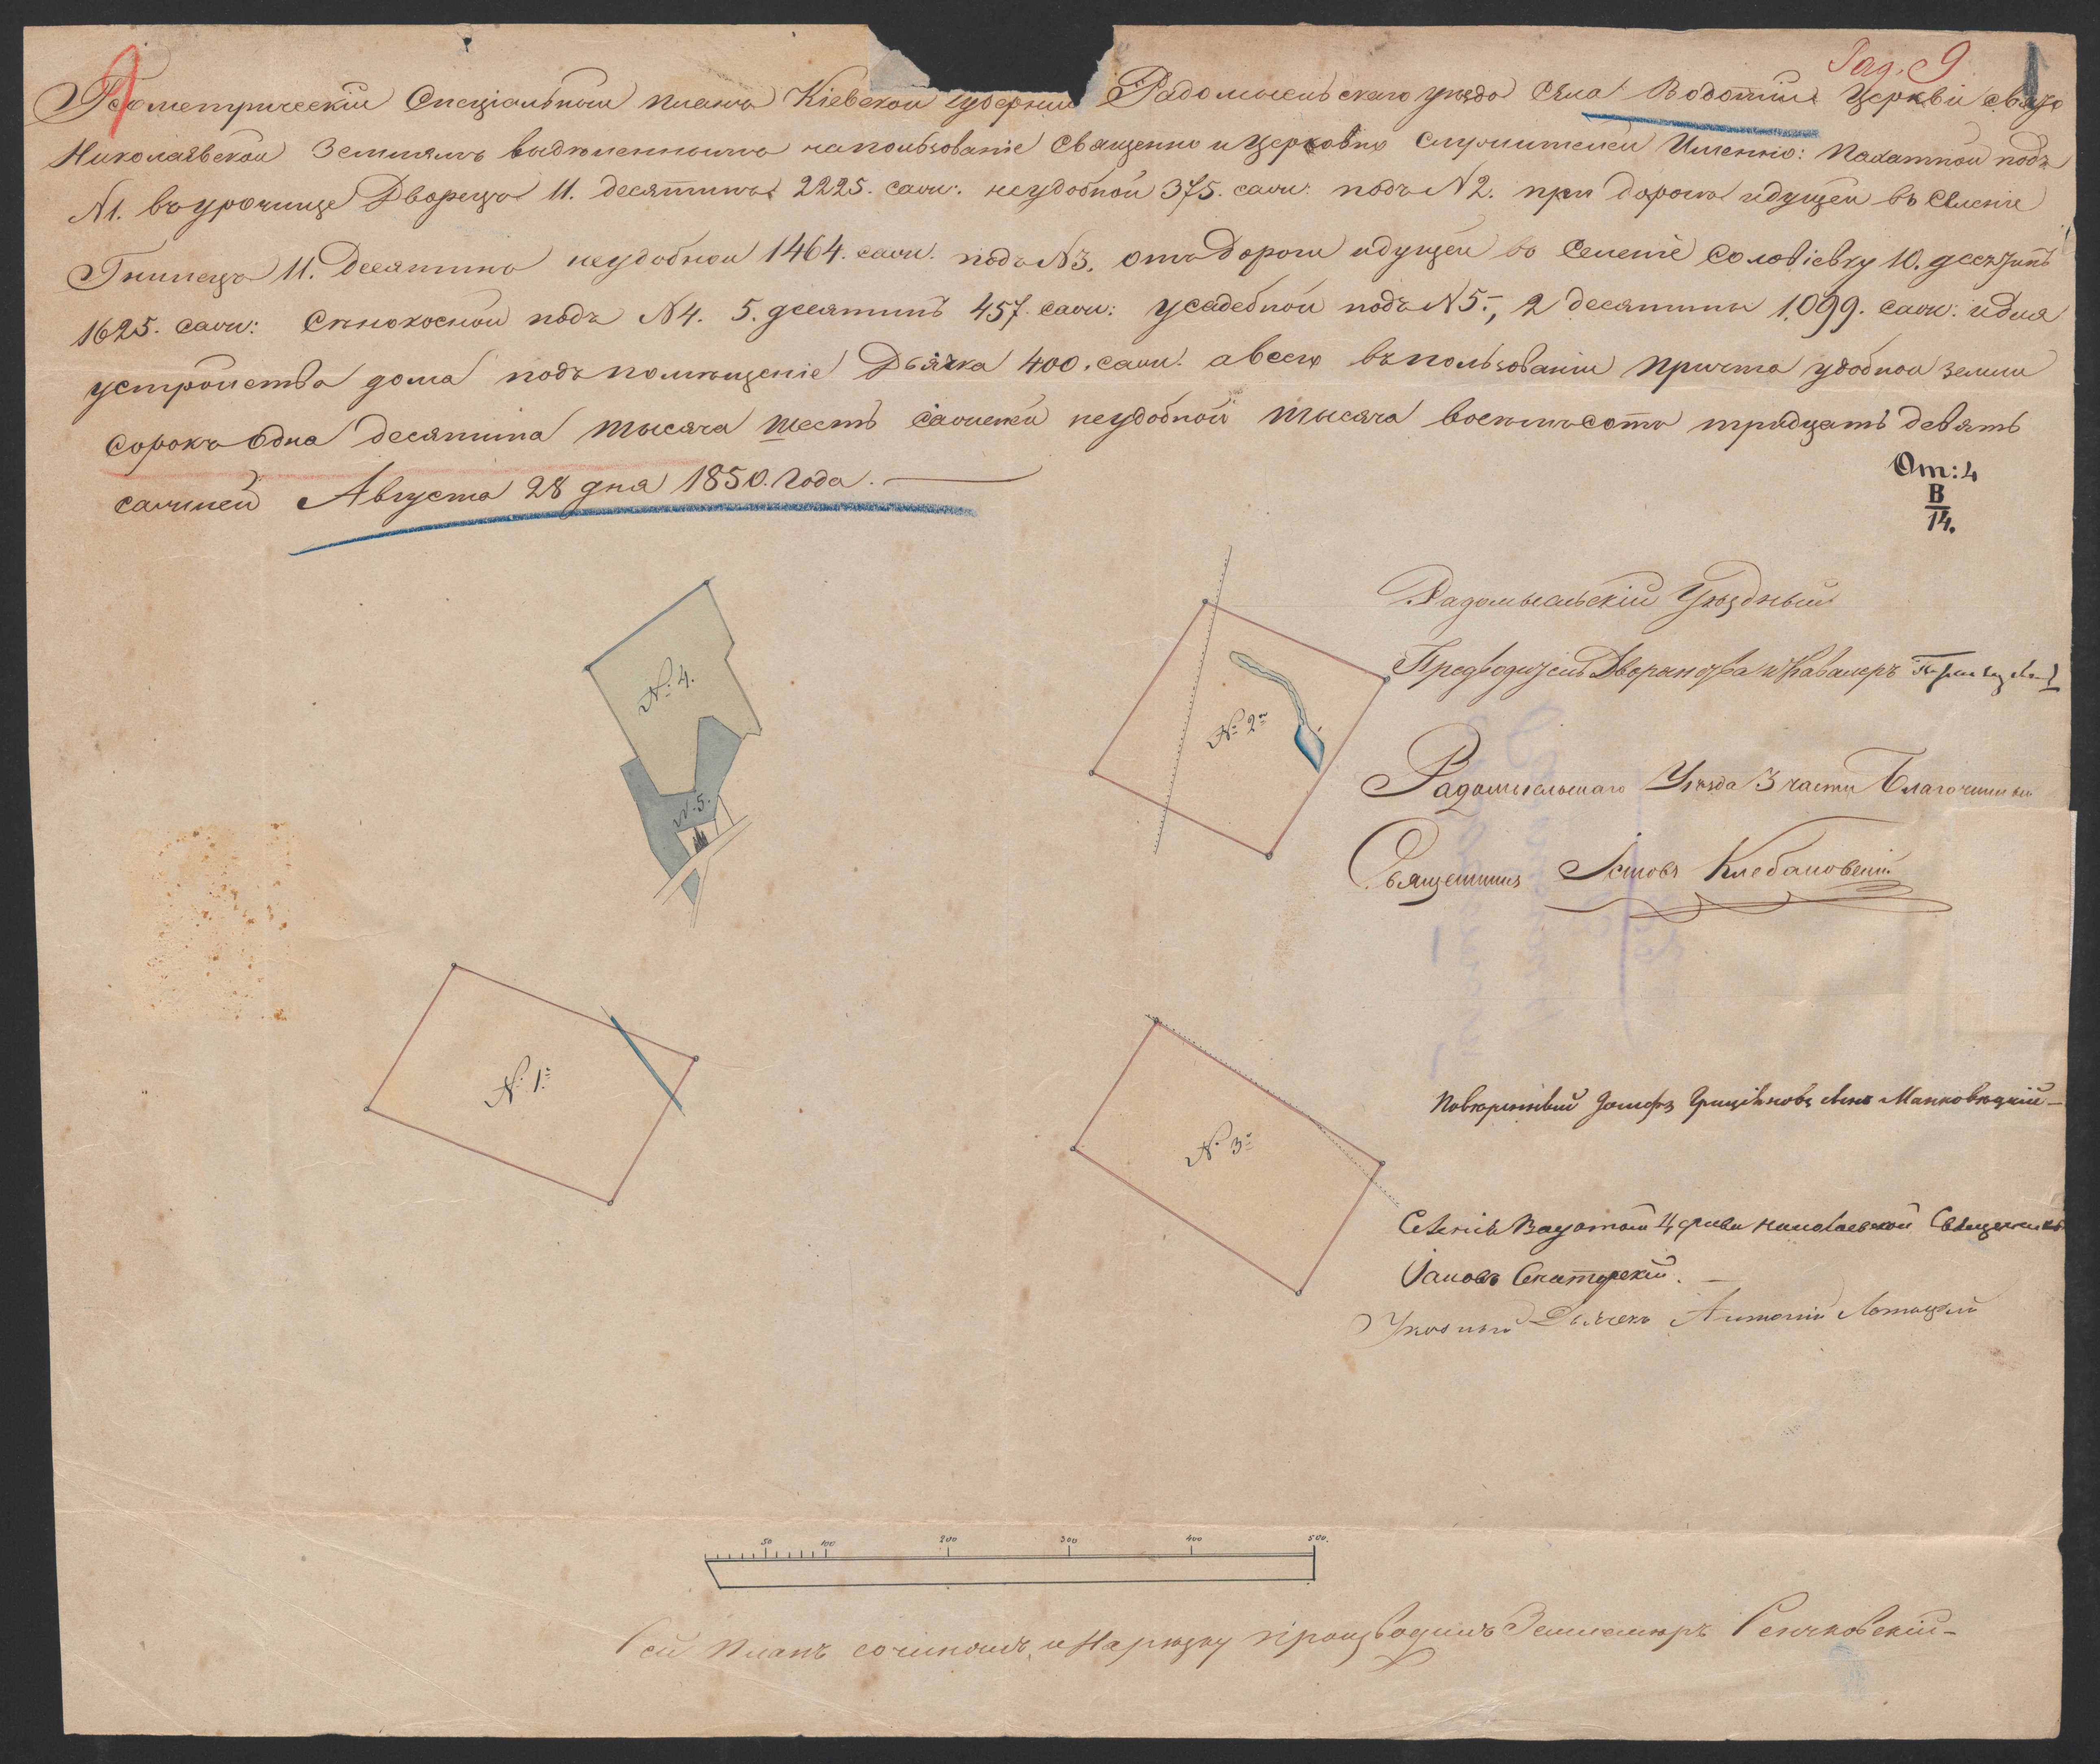 Рад. 9
Геометрическій Спеціальный планъ Кіевской губерніи Радомысльскаго уѣзда Села Водотій Церкви свято
Николаевской Землямъ выдѣленнымъ напользованіе Священно и церковно служителей Именно: Пахатной подъ
N1. въ урочище Дворецъ 11. десятинъ 2225. саж: неудобной 375. саж: подъ N2. при дороги идущей въ Селеніе
Гнилецъ 11. Десятинъ неудобной 1464. саж. подъ N3. отъ Дороги идущей во Селеніе Соловіевку 10. десятинъ
1625. саж: Сѣнокосной подъ N4. 5. десятинъ 457. саж: усадебной подъ N5., 2 десятины 1099. саж: и для
устройства дома подъ помѣщеніе Дьячка 400. саж. а всего въ пользованіи причта удобной земли
сорокъ одна десятина тысяча шесть саженей неудобной тысяча восемьсотъ тридцать девять
саженей Августа 28 дня 1850. Года.
От: 4
В
14.
Радомысльскій Уѣздный
Предводитель Дворянства и Кавалеръ
Радомысльскаго Уѣзда 3 части Благочинный
Священникъ Іаковъ Клебановскій
N: 4.
N: 2й
N. 5.
N: 1й
N: 3й
Повѣренный Іосифъ Маньковецкій
Селенія Водотій Церкви Николаевской Священникъ
Іаковъ Сенаторскій.
Указный Дьячекъ Антоній Лотоцкій
50 100 200 300 400 500.
Сей планъ сочинялъ и Нарѣзку производилъ Землемѣръ Сенчковскій